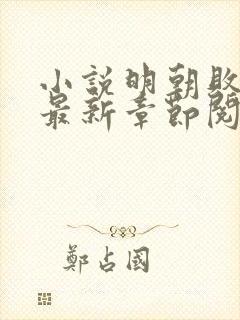 小說明朝敗
最新章節閱
鄭占國